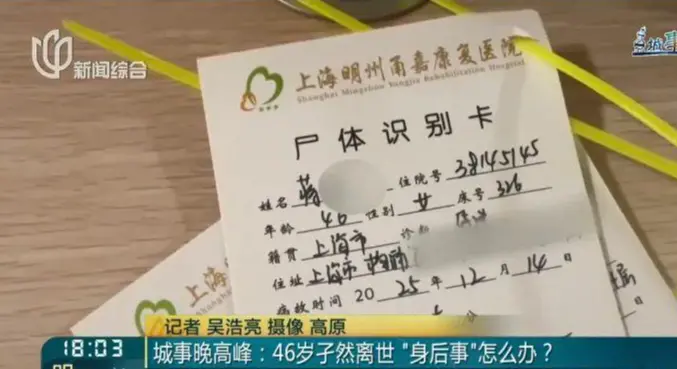 新闻综合
城事
上海明州甬嘉康复医院
Shanghai Mingzhou Yongjia Rehabilitation Hospital
尸体识别卡
姓名 蒋 住院号 38145145
年龄 46 性别 女 床号 326
籍贯 上海市 诊断
住址 上海市
病故时间 2025年12月14日
上海
记者 吴浩亮 摄像 高原
18:03 城事晚高峰：46岁孑然离世 "身后事"怎么办？